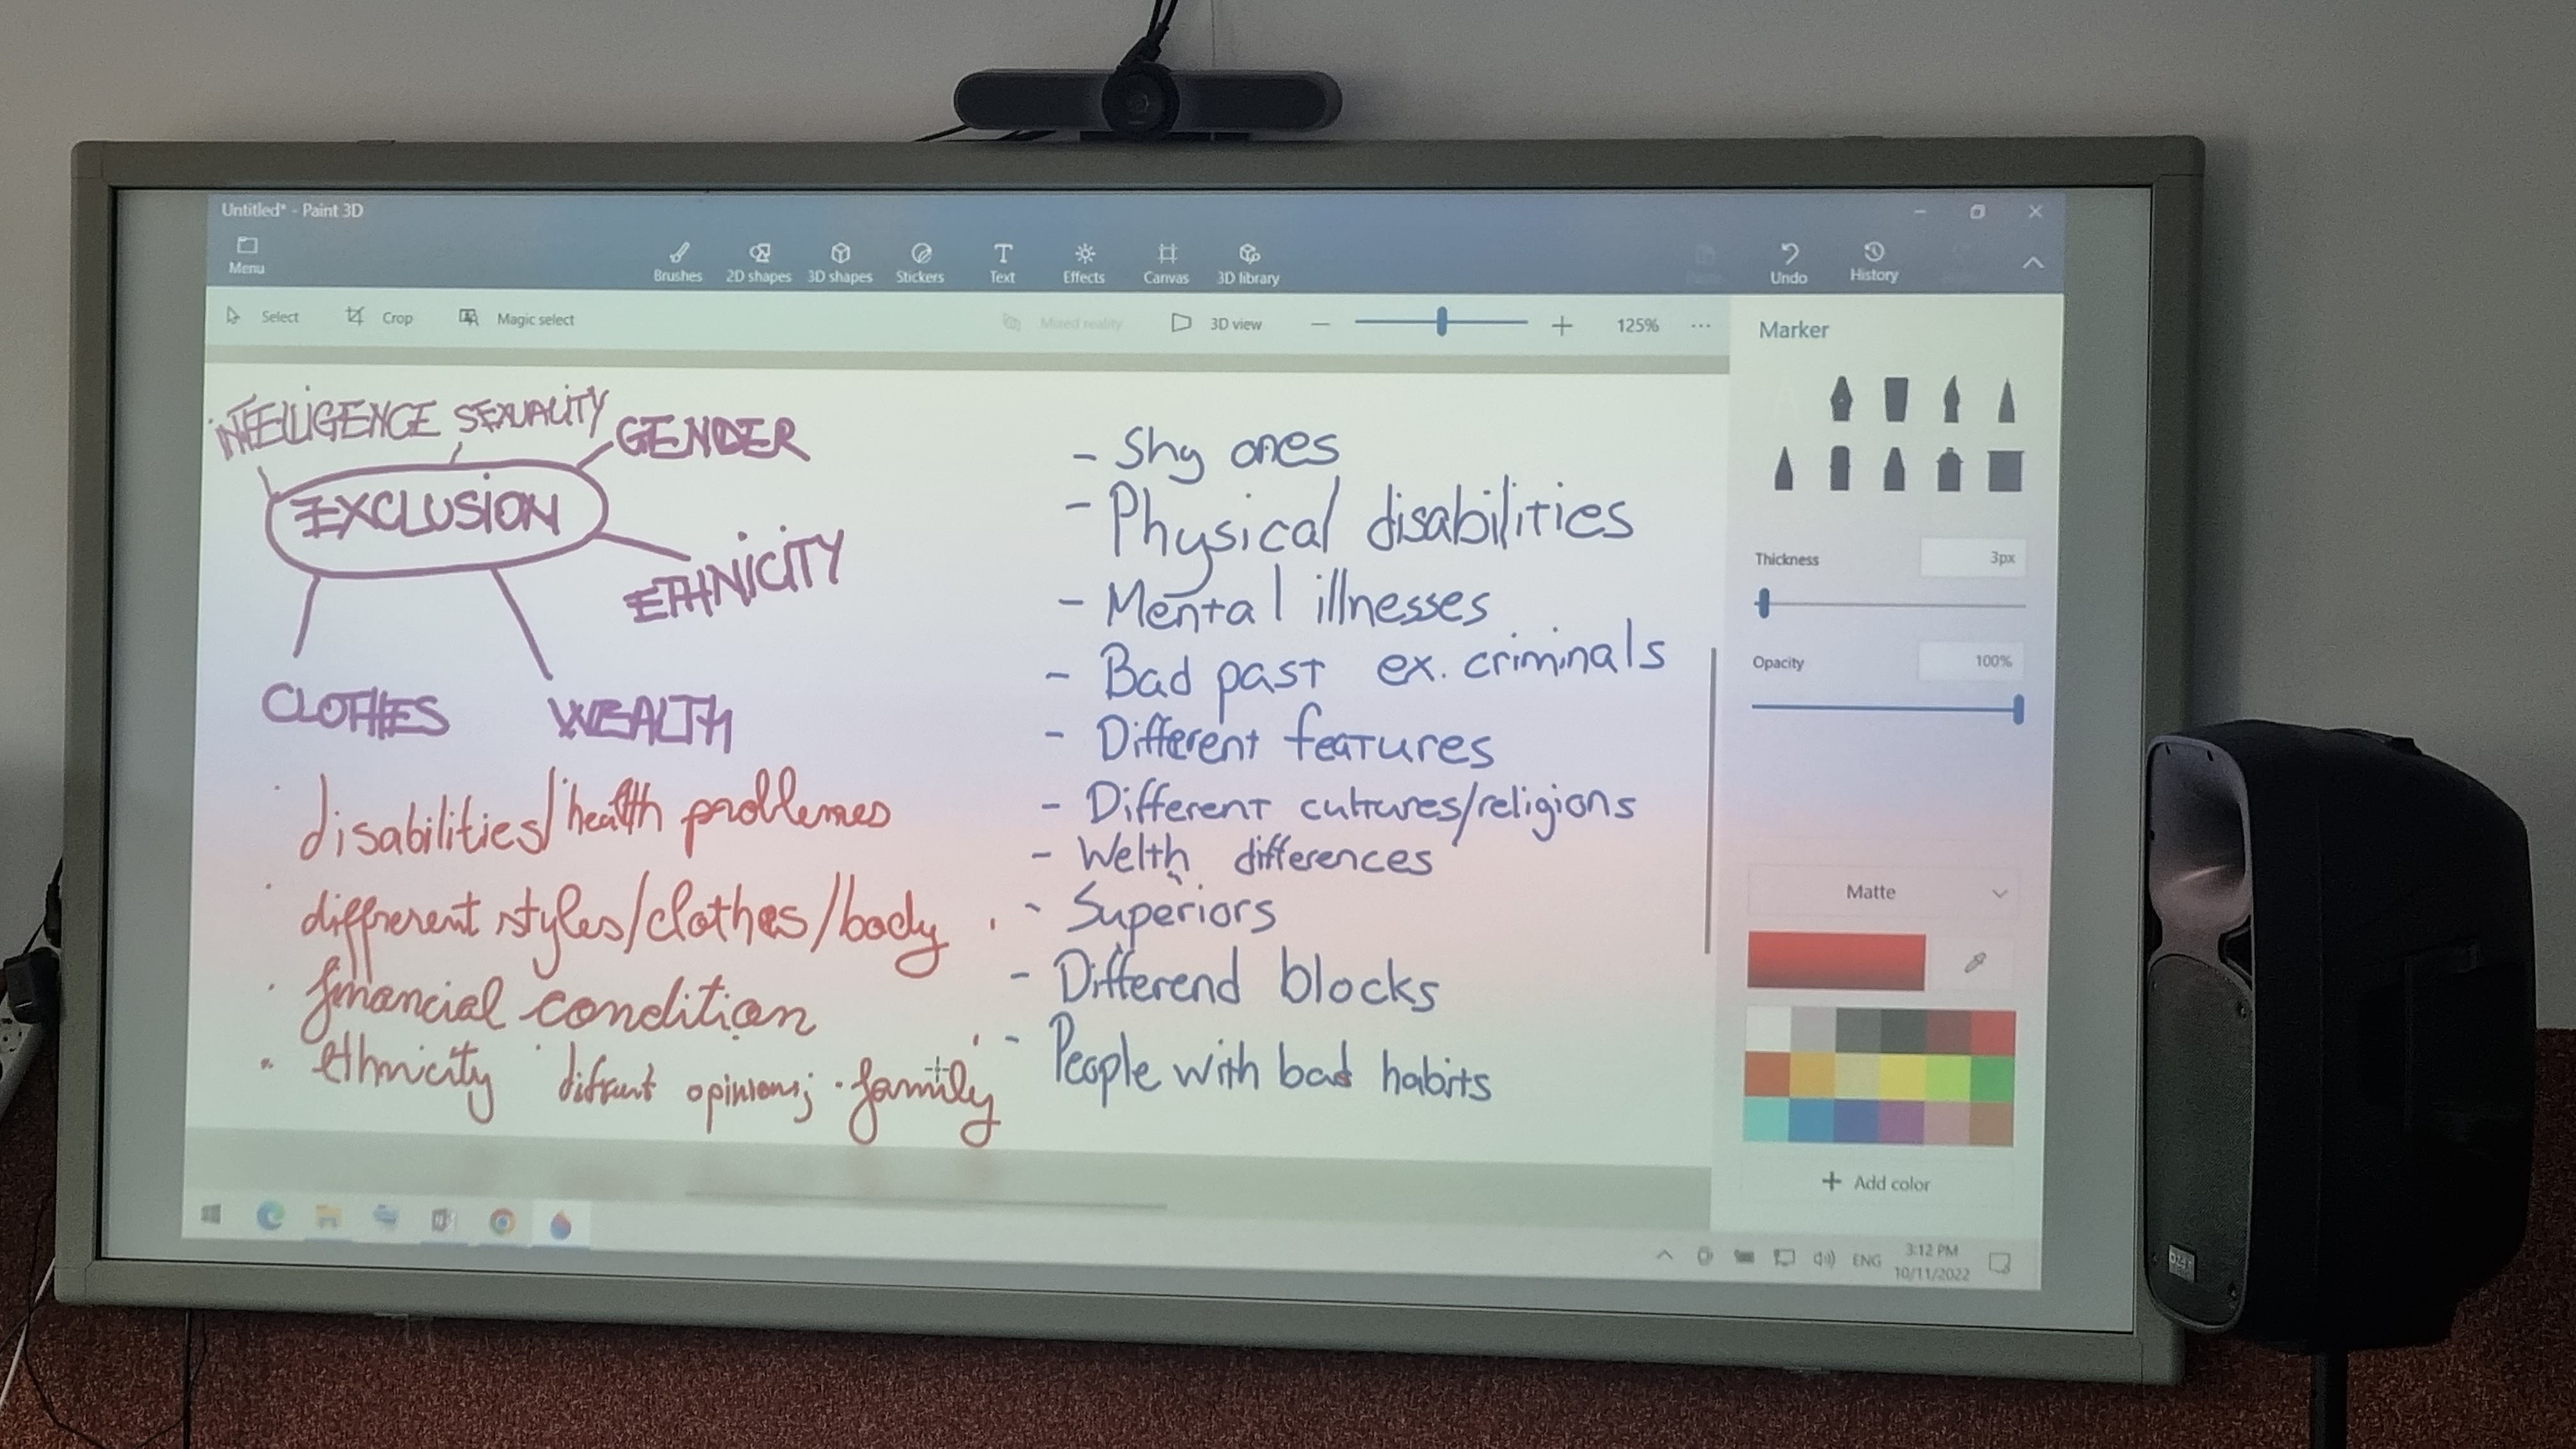 Untitled* - Paint 3D
Menu
Brushes 2D shapes 3D shapes Stickers Text Effects Canvas 3D library
Undo History
Select Crop Magic select
Mixed reality 3D view 125%
Marker
Thickness 3px
Opacity 100%
Matte
Add color
INTELLIGENCE SEXUALITY GENDER
EXCLUSION
ETHNICITY
CLOTHES WEALTH
disabilities/health problemes
different styles/clothes/body
financial condition
ethnicity opinions; family
- Shy ones
- Physical disabilities
- Mental illnesses
- Bad past ex. criminals
- Different features
- Different cultures/religions
- Welth differences
- Superiors
- Differend blocks
- People with bad habits
ENG
3:12 PM
10/11/2022